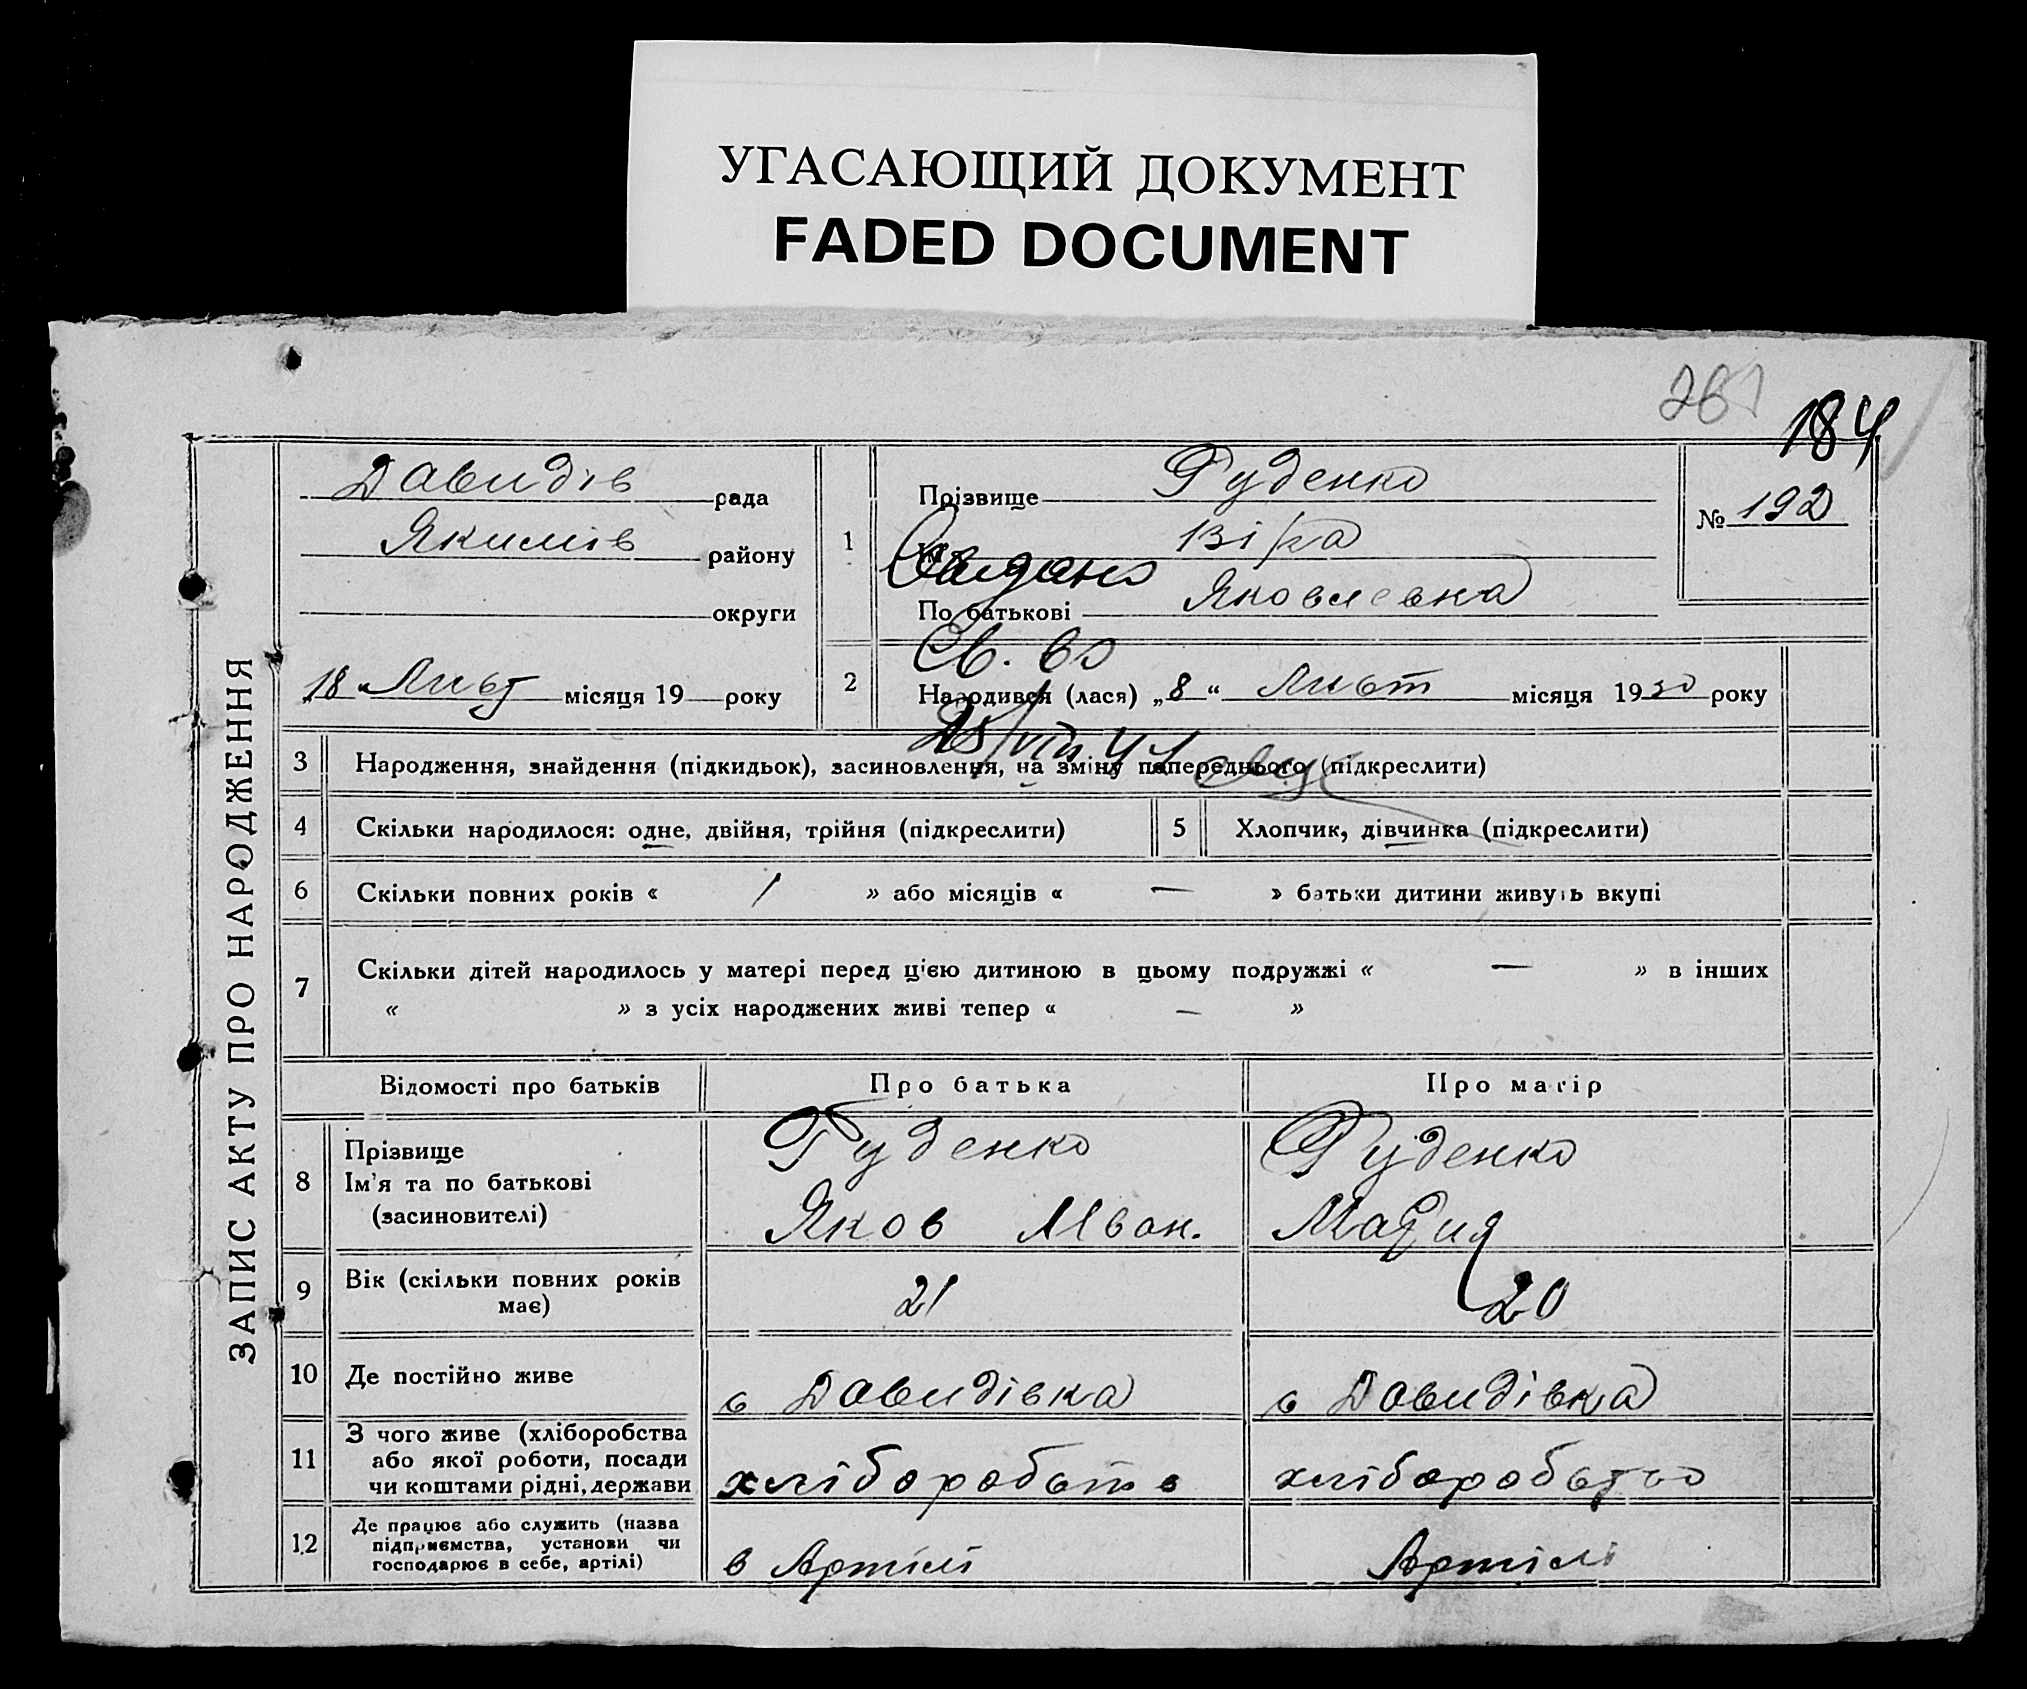 УГАСАЮЩИЙ ДОКУМЕНТ
FADED DOCUMENT
184
ЗАПИС АКТУ ПРО НАРОДЖЕННЯ
Давидів рада
Якимів району
округи
18 Лист місяця 19 року
1
Прізвище Руденко
Віра
По батькові Яковлевна
№ 192
Видано
Св. во
2
Народився (лася) „8“ Лист місяця 1930 року
3 Народження, знайдення (підкидьок), засиновлення, на зміну попереднього (підкреслити)
4 Скільки народилося: одне, двійня, трійня (підкреслити)
5 Хлопчик, дівчинка (підкреслити)
6 Скільки повних років « 1 » або місяців « — » батьки дитини живуть вкупі
7 Скільки дітей народилось у матері перед цією дитиною в цьому подружжі « — » в інших
« » з усіх народжених живі тепер « — »
Відомості про батьків Про батька Про матір
8 Прізвище
Ім'я та по батькові
(засиновителі)
Руденко
Яков Иван.
Руденко
Мария
9 Вік (скільки повних років
має)
21
20
10 Де постійно живе
с Давидівка
с Давидівка
11 З чого живе (хліборобства
або якої роботи, посади
чи коштами рідні, держави
хліборобств
хліборобство
12 Де працює або служить (назва
підприємства, установи чи
господарює в себе, артілі)
в Артілі
Артілі